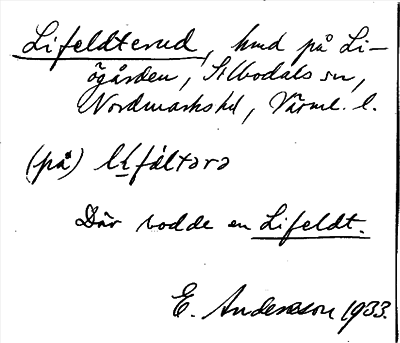 Lifeldterud, hmd på Li-
ögården, Silbodals sn,
Nordmarks hd, Värml. l.
(på)
Där bodde en Lifeldt.
E. Andersson 1933.